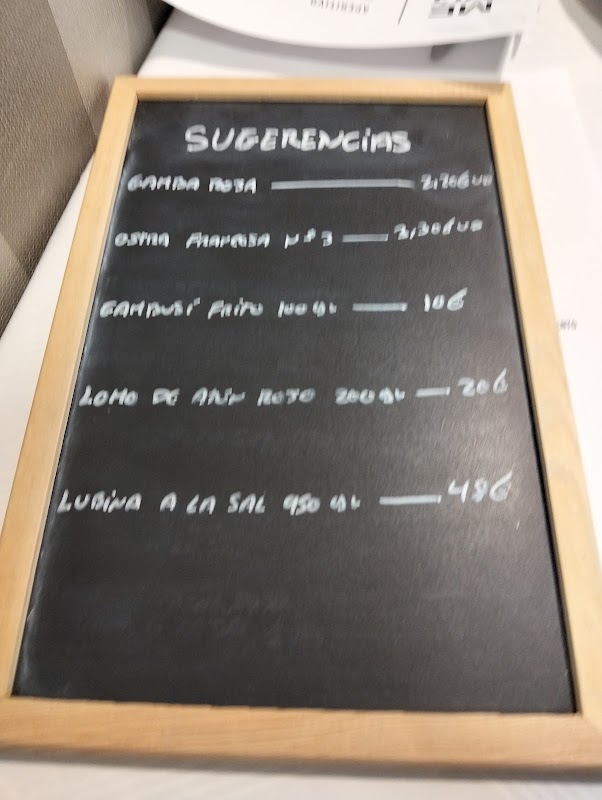 APERITIVO
SUGERENCIAS
GAMBA ROJA — 2,70€ UD
OSTRA FRANCESA Nº 3 — 3,30€ UD
GAMBUSÍ FRITO 100 gr — 10€
LOMO DE ATÚN ROJO 200 gr — 20€
LUBINA A LA SAL 950 gr — 48€